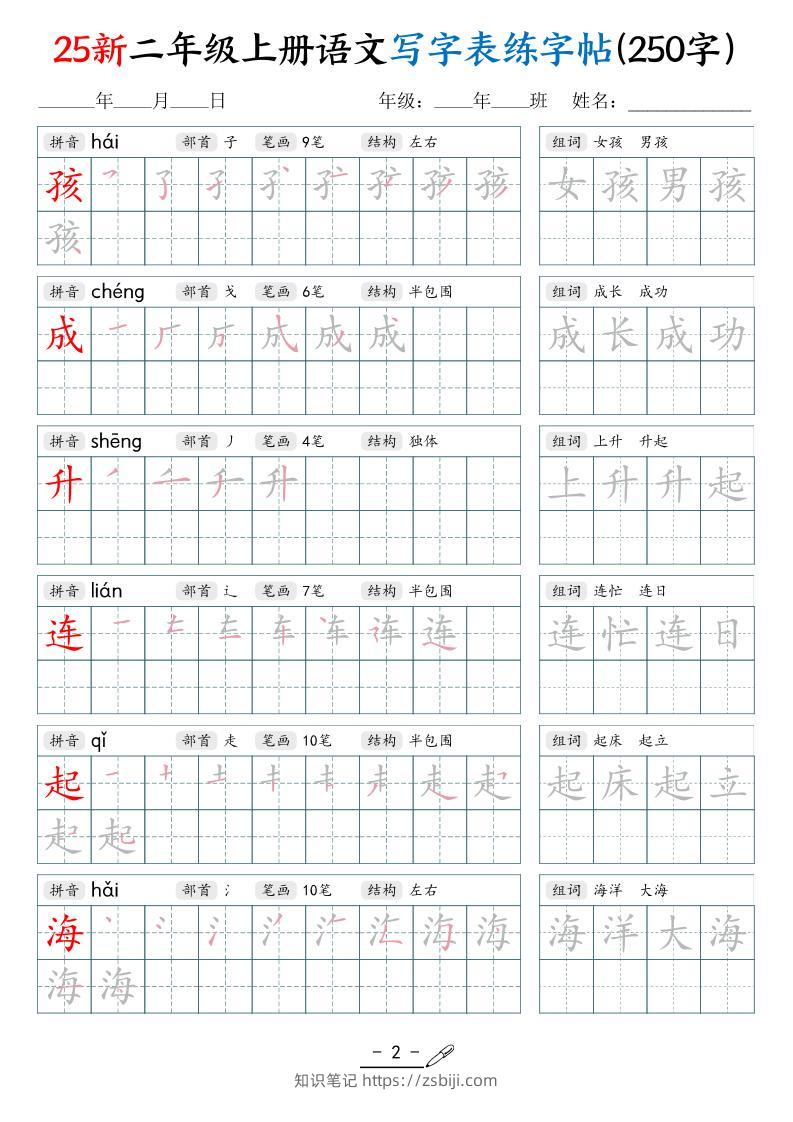 25新二年级上册语文写字表练字帖(250字)
____年____月____日 年级：____年____班 姓名：____________
拼音 hái 部首 子 笔画 9笔 结构 左右 组词 女孩 男孩
孩 女孩男孩
孩
拼音 chéng 部首 戈 笔画 6笔 结构 半包围 组词 成长 成功
成 成长成功
拼音 shēng 部首 丿 笔画 4笔 结构 独体 组词 上升 升起
升 上升升起
拼音 lián 部首 辶 笔画 7笔 结构 半包围 组词 连忙 连日
连 连忙连日
拼音 qǐ 部首 走 笔画 10笔 结构 半包围 组词 起床 起立
起 起床起立
起 起
拼音 hǎi 部首 氵 笔画 10笔 结构 左右 组词 海洋 大海
海 海洋大海
海 海
- 2 -
知识笔记 https://zsbiji.com